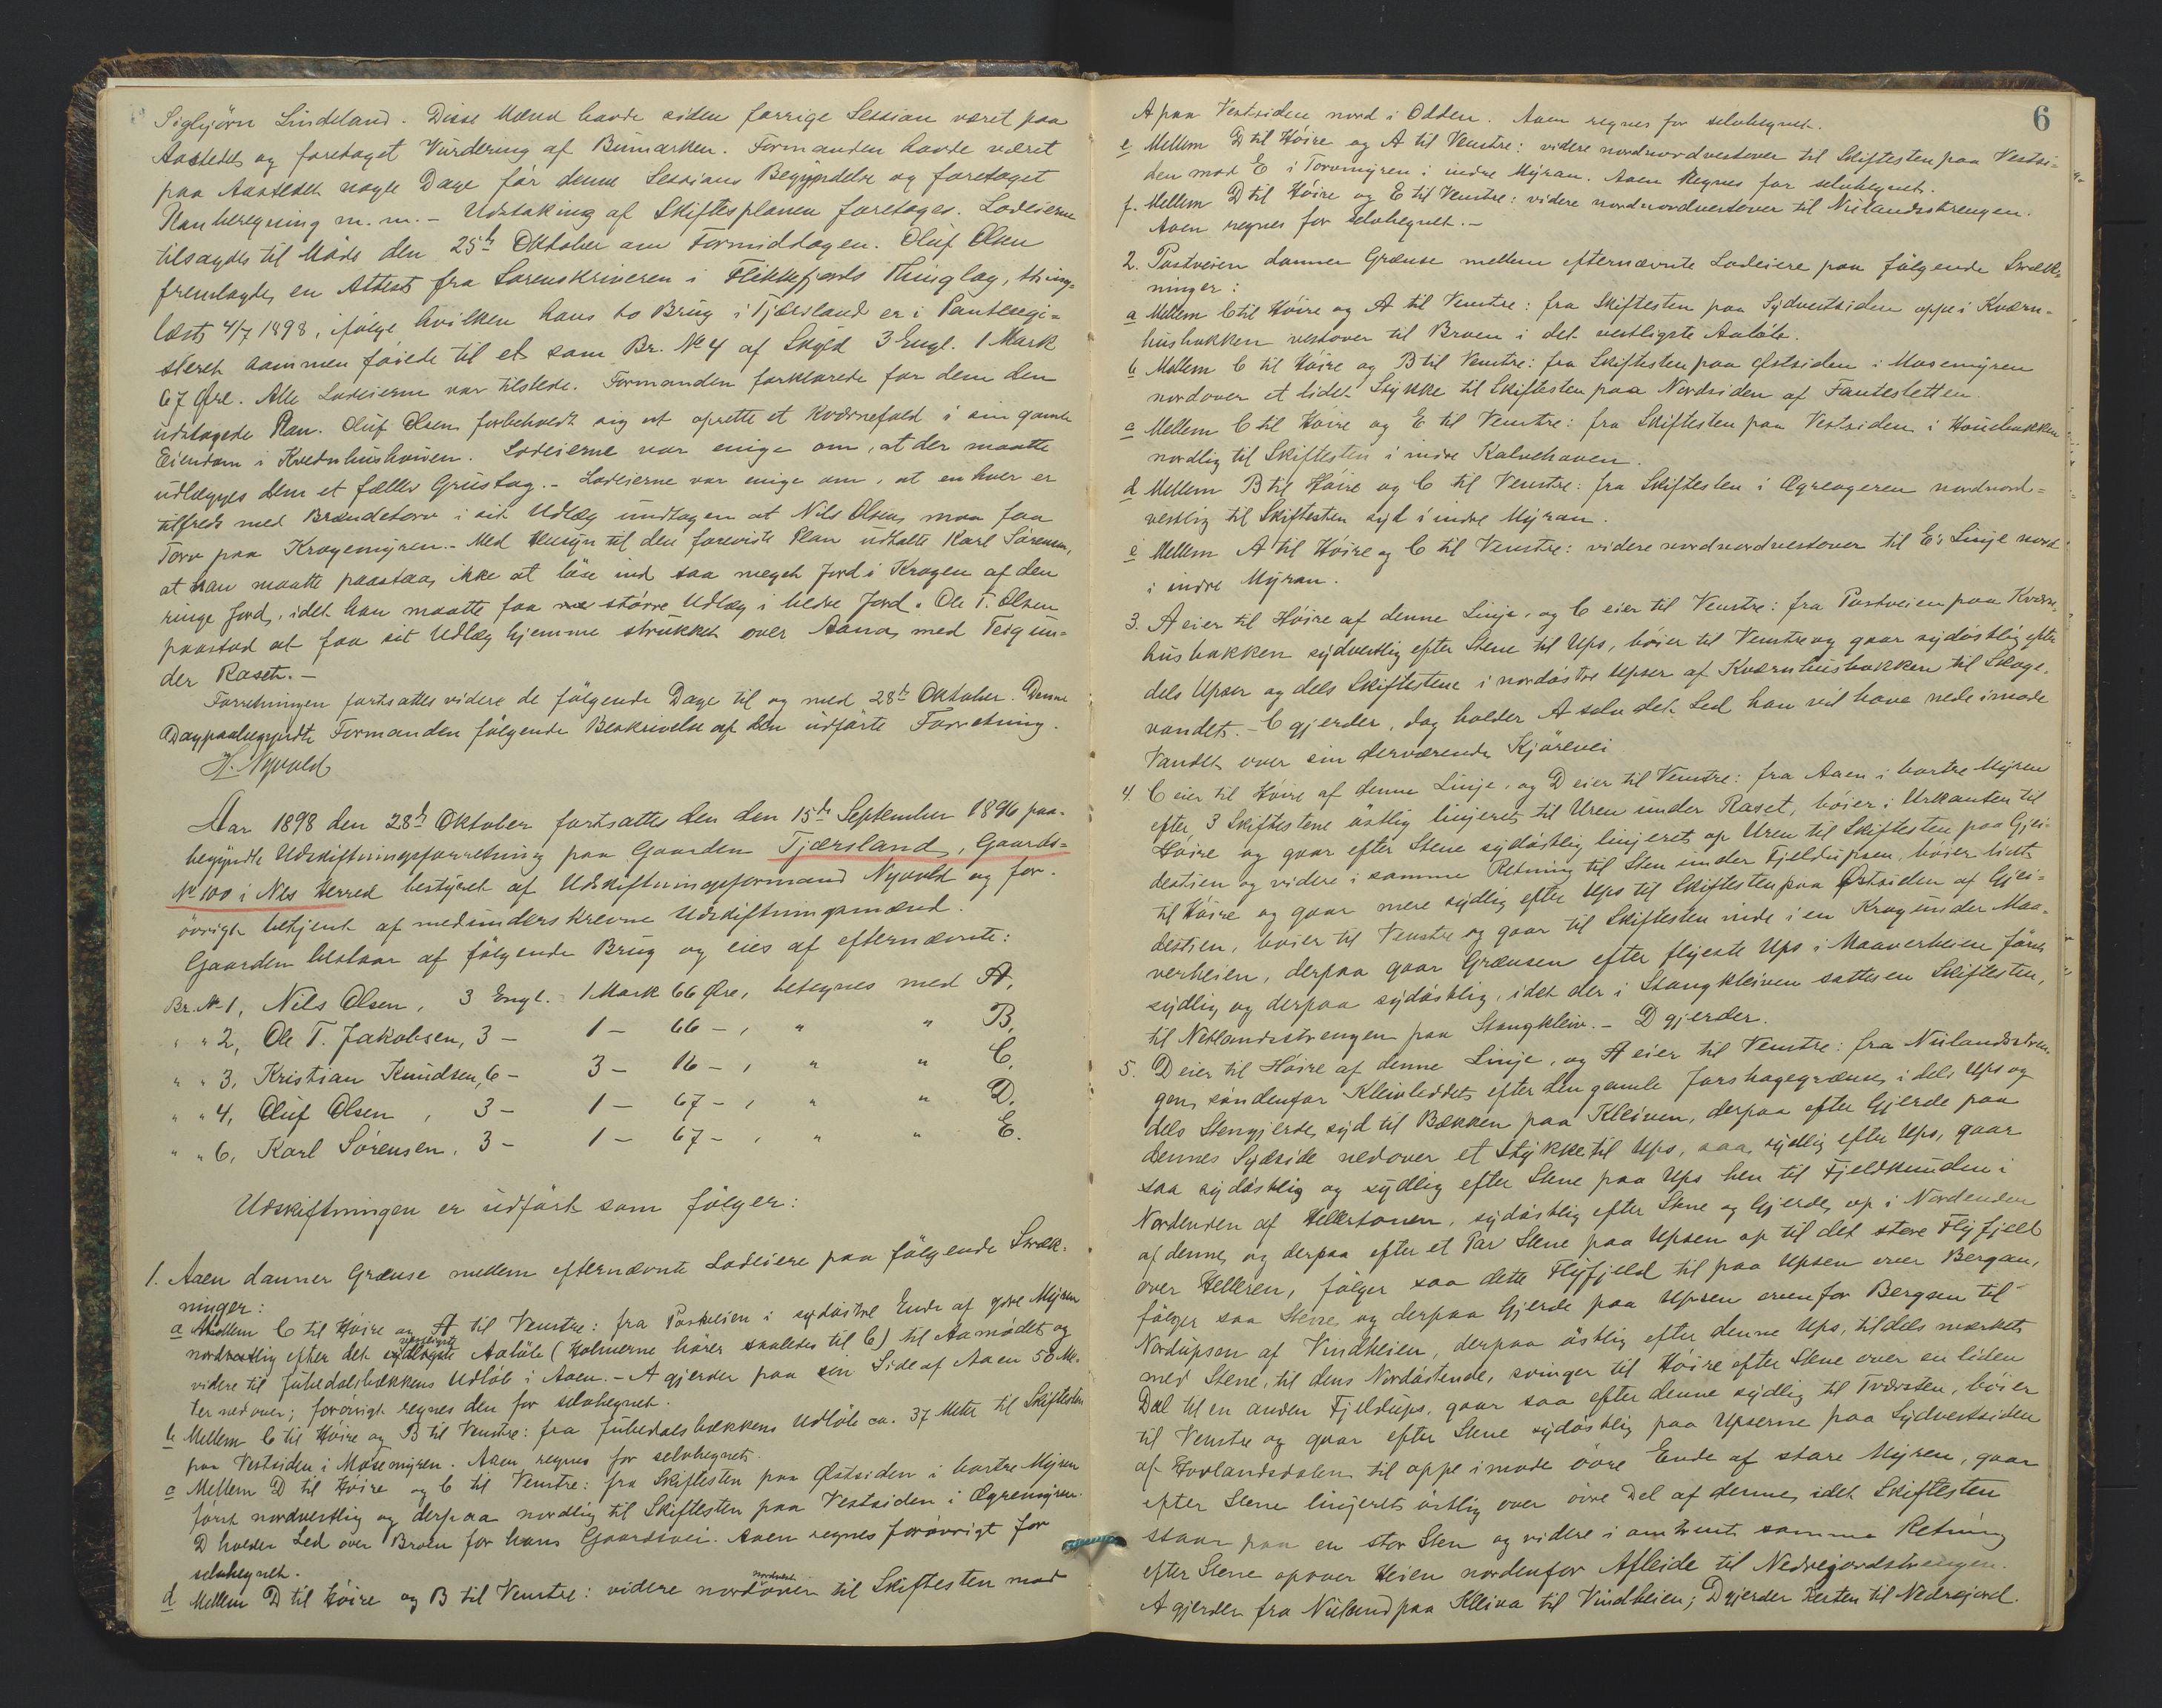 Sigbjörn Lindeland. Disse Mænd havde siden forrige Session været paa
Aastedet og foretaget Vurdering af Bumarken. Formanden havde været
paa Aastedet nogle Dage för denne Sessions Begyndelse og foretaget
Planberegning m. m. – Udstaking af Skiftesplanen foretages. Lodeierne
tilsagdes til Möde den 25de Oktober om Formiddagen. Oluf Olsen
fremlagde en Attest fra Sorenskriveren i Flekkefjords Thinglag, thing-
læst 4/7 1898, ifölge hvilken hans to Brug i Tjærsland er i Panteregi-
steret sammenföiede til et som Br. No 4 af Skyld 3 Engl. 1 Mark
67 Öre. Alle Lodeierne var tilstede. Formanden forklarede for dem den
udstagede Plan. Oluf Olsen forbeholdt sig at oprette et Kværnefald i sin gamle
Eiendom i Kvednhushöuen. Lodeierne var enige om, at der maatte
udlægges dem et fælles Grustag. – Lodeierne var enige om, at enhver er
tilfreds med Brændetorv i sit Udlæg undtagen at Nils Olsen maa faa
Torv paa Kragemyren. – Med Hensyn til den foreviste Plan udtalte Karl Sörensen,
at han maatte paastaa, ikke at löse ind saa meget Jord i Krogen af den
ringe Jord, idet han maatte faa større Udlæg i bedre Jord. Ole T. Olsen
paastod at faa sit Udlæg hjemme strukket over Aana med Teig un-
der Raset. –
Forretningen fortsattes videre de fölgende Dage til og med 28de Oktober. Denne
Dag paabegyndte Formanden fölgende Beskrivelse af den udförte Forretning.
H. Nyvold
Aar 1898 den 28de Oktober fortsattes den den 15de September 1896 paa-
begyndte Udskiftningsforretning paa Gaarden Tjærsland, Gaards-
No 100 i Nes Herred bestyret af Udskiftningsformand Nyvold og for-
övrigt betjent af medunderskrevne Udskiftningsmænd.
Gaarden bestaar af fölgende Brug og eies af efternævnte:
Br. No 1, Nils Olsen, 3 Engl. 1 Mark 66 Öre, betegnes med A,
" " 2, Ole T. Jakobsen, 3 – 1 – 66 – , " " B,
" " 3, Kristian Knudsen, 6 – 3 – 16 – , " " C,
" " 4, Oluf Olsen, 3 – 1 – 67 – , " " D.
" " 6, Karl Sörensen, 3 – 1 – 67 – , " " E.
Udskiftningen er udfört som fölger:
1. Aaen danner Grænse mellem efternævnte Lodeiere paa fölgende Stræk-
ninger:
a Mellem C til Höire og A til Venstre: fra Postveien i sydöstre Ende af ydre Myren
nordvestlig efter det Aalöb (Holmerne hörer saaledes til C) til Aamödet og
videre til Jubedalsbækkens Udlöb i Aaen. – A gjerder paa sin Side af Aaen 50 Me-
ter nedover; forövrigt regnes den for selvhegnet.
b Mellem C til Höire og B til Venstre: fra Jubedalsbækkens Udlöb ca. 37 Meter til Skiftesten
paa Vestsiden i Mosemyren. Aaen regnes for selvhegnet.
c Mellem D til Höire og C til Venstre: fra Skiftesten paa Östsiden i bortre Myren
först nordvestlig og derpaa nordlig til Skiftesten paa Vestsiden i Ögremyren.
D holder Led over Broen for hans Gaardsvei. Aaen regnes forövrigt for
selvhegnet.
d Mellem D til Höire og B til Venstre: videre nordnordvestover til Skiftesten mod
6
A paa Vestsiden nord i Odden. Aaen regnes for selvhegnet.
e Mellem D til Höire og A til Venstre: videre nordnordvestover til Skiftesten paa Vestsi-
den mod E i Torvmyren i indre Myran. Aaen regnes for selvhegnet.
f. Mellem D til Höire og E til Venstre: videre nordnordvestover til Nulandsstrengen.
Aaen regnes for selvhegnet. –
2. Postveien danner Grænse mellem efternævnte Lodeiere paa fölgende Stræk-
ninger:
a Mellem C til Höire og A til Venstre: fra Skiftesten paa Sydvestsiden oppe i Kværn-
husbakken vestover til Broen i det vestligste Aalöb.
b Mellem C til Höire og B til Venstre: fra Skiftesten paa Östsiden i Mosemyren
nordover et lidet Stykke til Skiftesten paa Nordsiden af Fantesletten.
c Mellem C til Höire og E til Venstre: fra Skiftesten paa Vestsiden i Houebakken
nordlig til Skiftesten i indre Kalvehaven.
d Mellem B til Höire og C til Venstre: fra Skiftesten i Ögreageren nordnord-
vestlig til Skiftesten syd i indre Myran.
e Mellem A til Höire og C til Venstre: videre nordnordvestover til E's Linje nord
i indre Myran.
3. A eier til Höire af denne Linje, og C eier til Venstre: fra Postveien paa Kværn-
husbakken sydvestlig efter Stene til Ups, böier til Venstre og gaar sydöstlig efter
dels Upser og dels Skiftestene i nordöstre Upser af Kværnhusbakken til Skage-
vandet. – C gjerder, dog holder A selv det Led han vil have nede imode
Vandet over sin derværende Kjörevei
4. C eier til Höire af denne Linje, og D eier til Venstre: fra Aaen i bortre Myren
efter 3 Skiftestene östlig linjeret til Uren under Raset, böier i Urkanten til
Höire og gaar efter Stene sydöstlig linjeret op Uren til Skiftesten paa Gjei-
destien og videre i samme Retning til Sten under Fjeldupsen, böier lidt
til Höire og gaar mere sydlig efter Ups til Skiftesten paa Östsiden af Gjei-
destien, böier til Venstre og gaar til Skiftesten inde i en Krog under Maa-
verheien, derpaa gaar Grænsen efter flyeste Ups i Maaverheien först
sydlig og derpaa sydöstlig, idet der i Stangkleiven sattes en Skiftesten,
til Netlandsstrengen paa Stangkleiv. – D gjerder.
5. D eier til Höire af denne Linje, og A eier til Venstre: fra Nulandsstren-
gen söndenfor Kleivleddet efter den gamle Jorshagegrænse i dels Ups og
dels Stengjerde syd til Bækken paa Kleiven, derpaa efter Gjerde paa
dennes Sydside nedover et Stykke til Ups, saa sydlig efter Ups, gaar
saa sydöstlig og sydlig efter Stene paa Ups hen til Fjeldknuden i
Nordenden af Hellertonen, sydöstlig efter Stene og Gjerde op i Nordenden
af denne og derpaa efter et Par Stene paa Upsen op til det store Flyfjeld
over Helleren, fölger saa dette Flyfjeld til paa Upsen over Bergan,
fölger saa Stene og derpaa Gjerde paa Upsen ovenfor Bergan til
Nordupsen af Vindheien, derpaa östlig efter denne Ups, tildels mærket
med Stene, til dens Nordöstende, svinger til Höire efter Stene over en liden
Dal til en anden Fjeldups, gaar saa efter denne sydlig til Tværsten, böier
til Venstre og gaar efter Stene sydöstlig paa Upserne paa Sydvestsiden
af Hovlandsdalen til oppe imode övre Ende af store Myren, gaar
efter Stene linjeret östlig over övre Del af denne, idet Skiftesten
staar paa en stor Sten og videre i omtrent samme Retning
efter Stene opover Heien nordenfor Afleide til Nedrejordstrengen.
A gjerder fra Nuland paa Kleiva til Vindheien; D gjerder Resten til Nedrejord.